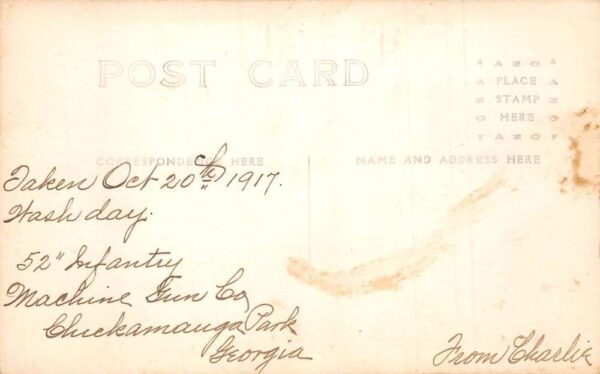 POST CARD
AZOA
PLACE
STAMP
HERE
AZOA
CORRESPONDENCE HERE
NAME AND ADDRESS HERE
Taken Oct 20th 1917.
Wash day.
52" Infantry
Machine Gun Co
Chickamauga Park
Georgia
From Charlie